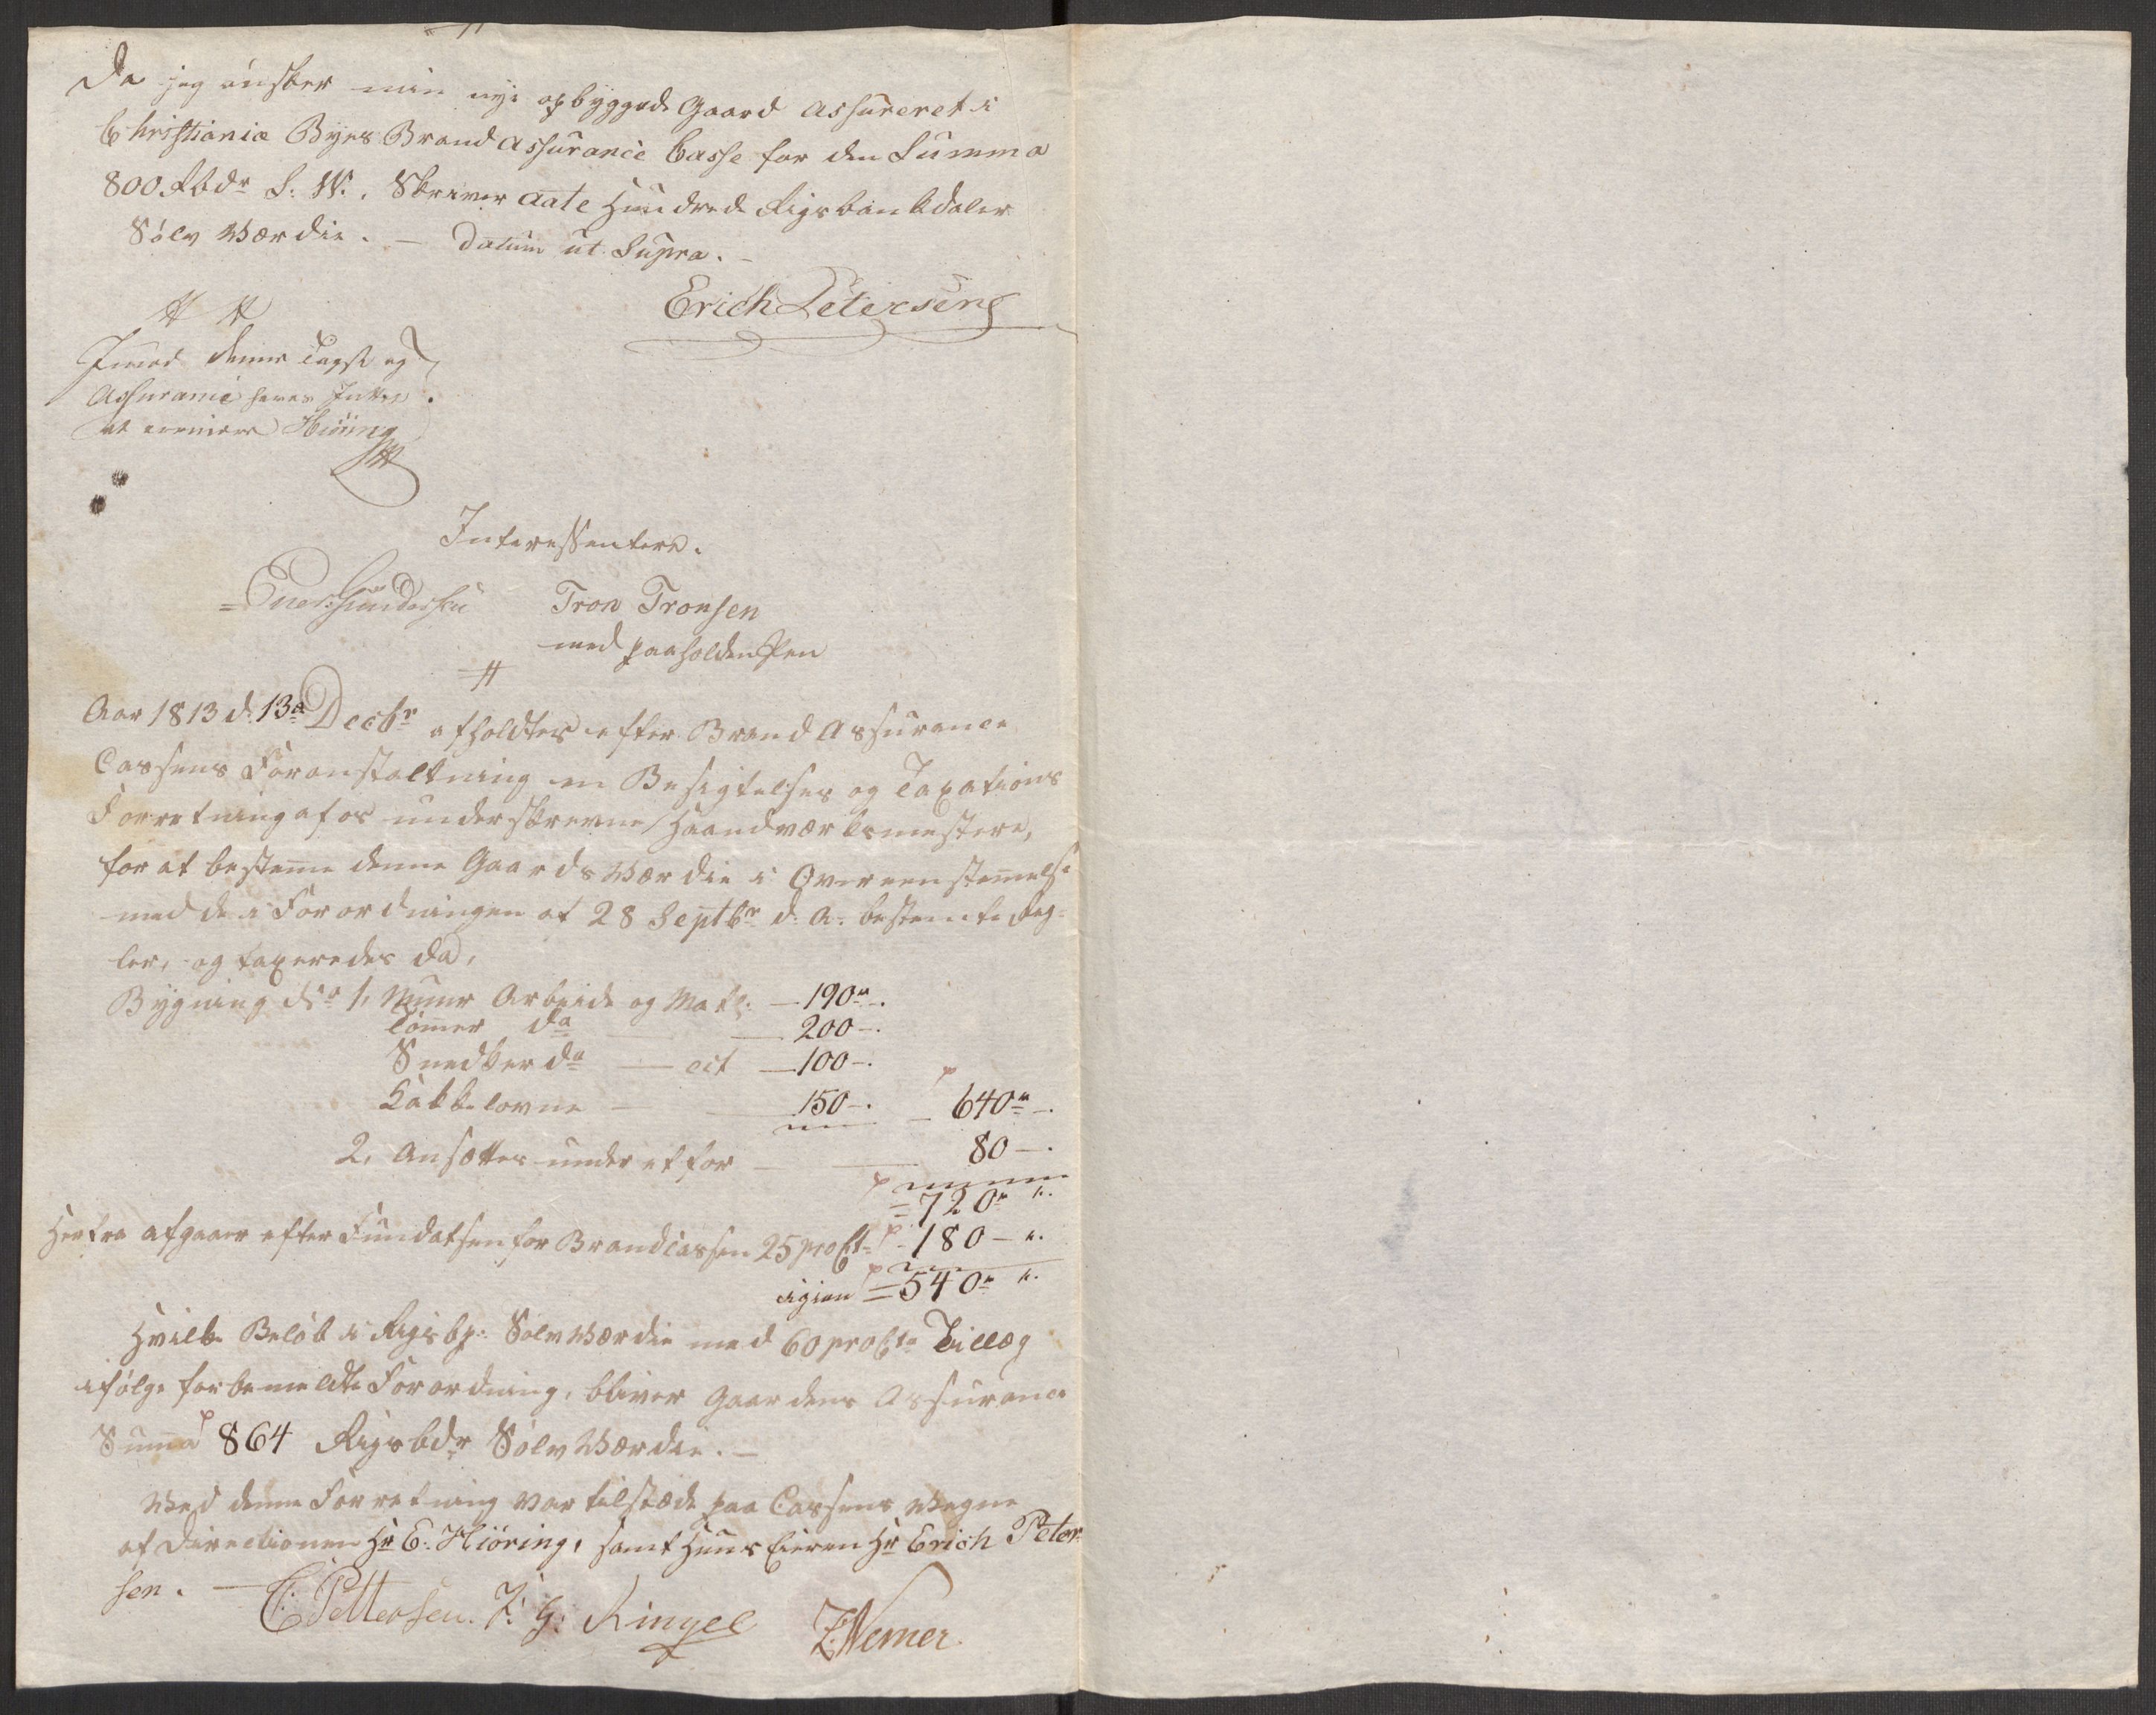 Da jeg ønsker min nye opbyggede Gaard Assureret i
Christiania Byes Brand Assurance Casse for den Summa
800 Rbdr S. W. Skriver aate Hundrede Rigsbankdaler
Sølv Værdie. — Datum ut Supra. —
Erich Petersen
Imod denne Taxst og
Assurance haves Intet
at erindre Hiöring
Interessentere.
Tron Tronsen
med paaholden Pen
Aar 1813 d. 13de Decbr afholdtes efter Brand Assurance
Cassens Foranstaltning en Besigtelses og Taxations
Forretning af os underskrevne Haandværksmestere,
for at bestemme denne Gaards Værdie i Overeenstemmelse
med de i Forordningen af 28 Septbr d. A. bestemte Reg-
ler, og taxeredes da,
Bygning No 1. Muur Arbeide og Matl. — 190 „ -.
Tømmer do — 200 -.
Snedker do — 100 -.
Kakkelovne — 150 -. — 640 „ -.
2. Ansættes under et for — 80 -.
= 720 „ „.
Herfra afgaaer efter Fundatsen for Brandcassen 25 pro Ct. 180 - „.
igien = 540 „ „.
Hvilke Beløb i Rigsbp. Sølv Værdie med 60 pro Cto Tillæg
ifølge forbemeldte Forordning, bliver Gaardens Assurance
Suma 864 Rigsbdr Sølv Værdie. —
Ved denne Forretning var tilstæde paa Cassens Vegne
af Directionen Hr E. Hiöring, samt Huus Eieren Hr Erich Peter-
sen. — C. Pettersen. J. G. Ringel Z. Werner.